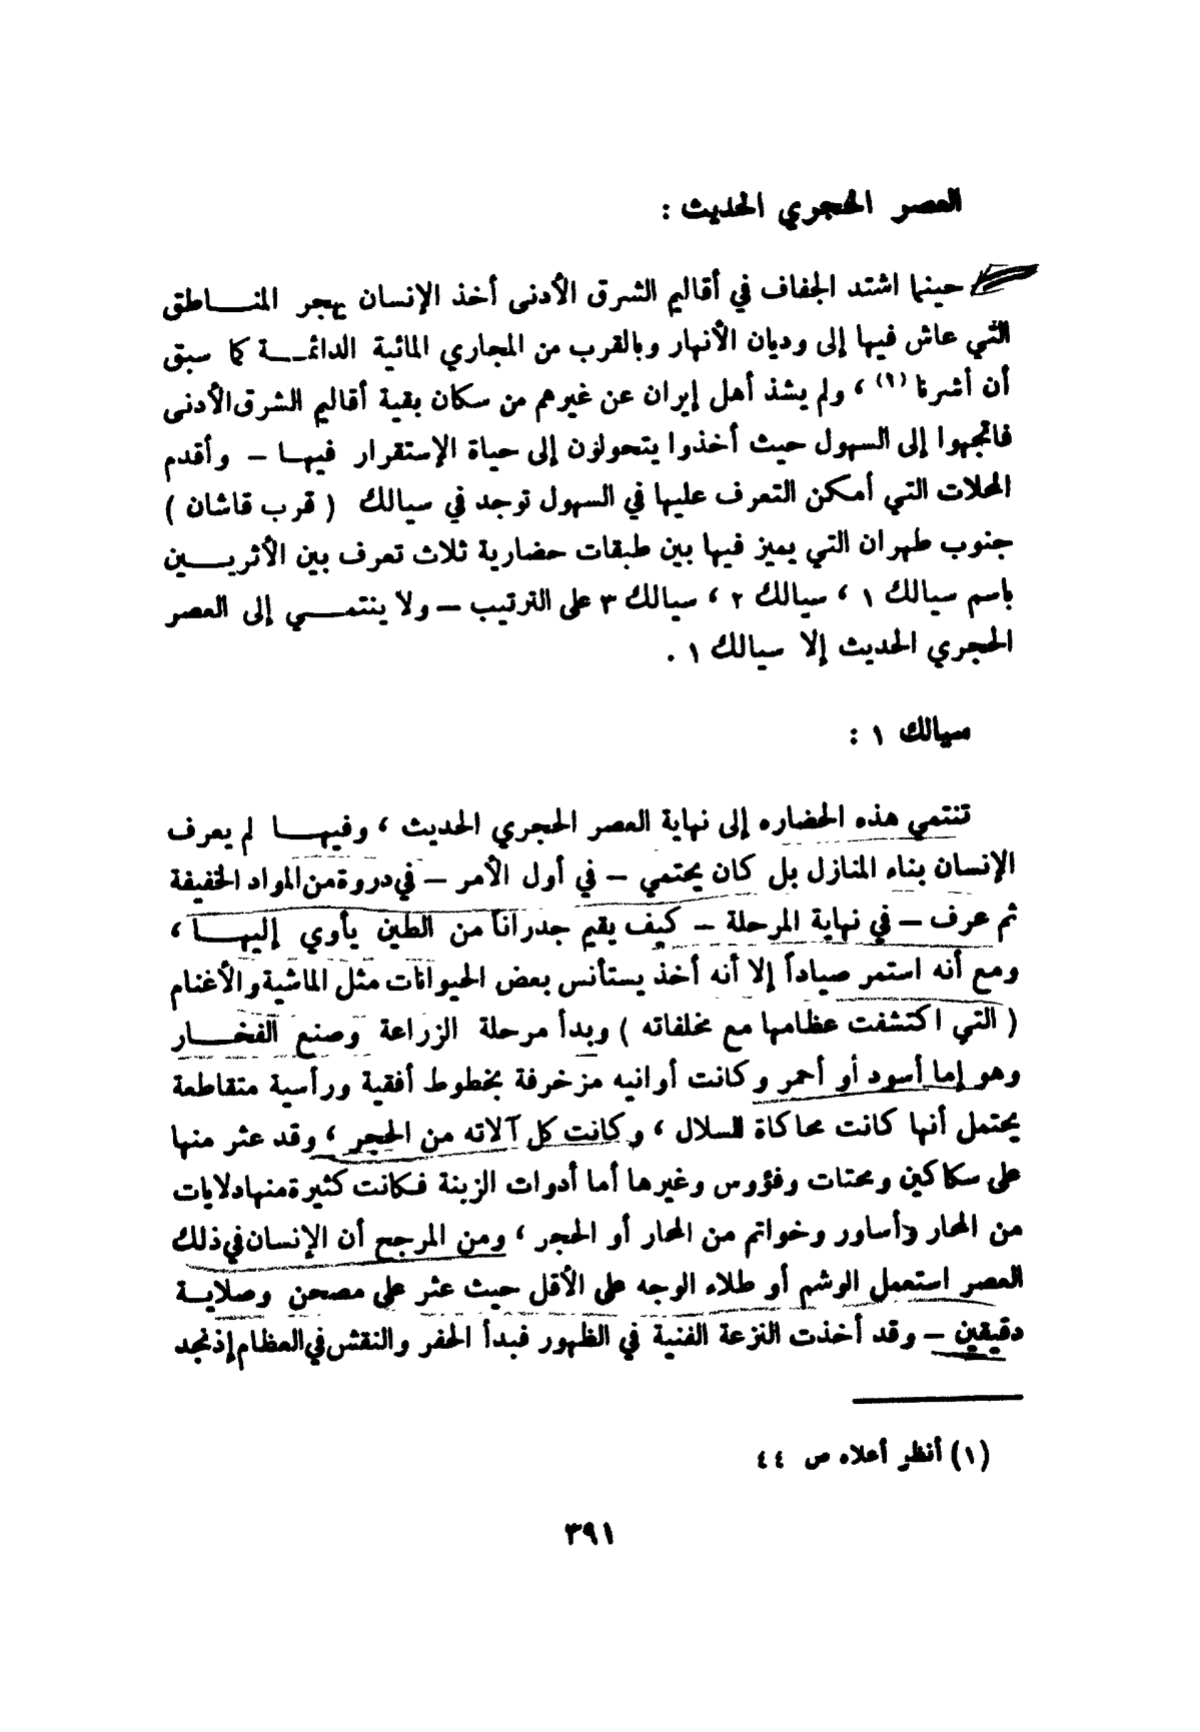 العصر الحجري الحديث :
حينما اشتد الجفاف في أقاليم الشرق الأدنى أخذ الإنسان يهجر المنــاطق
التي عاش فيها إلى وديان الأنهار وبالقرب من المجاري المائية الدائمــة كما سبق
أن أشرنا (١) ، ولم يشذ أهل إيران عن غيرهم من سكان بقية أقاليم الشرق الأدنى
فاتجهوا إلى السهول حيث أخذوا يتحولون إلى حياة الإستقرار فيهــا – وأقدم
المحلات التي أمكن التعرف عليها في السهول توجد في سيالك ( قرب قاشان )
جنوب طهران التي يميز فيها بين طبقات حضارية ثلاث تعرف بين الأثريــين
باسم سيالك ١ ، سيالك ٢ ، سيالك ٣ على الترتيب – ولا ينتمــي إلى العصر
الحجري الحديث إلا سيالك ١ .
سيالك ١ :
تنتمي هذه الحضاره إلى نهاية العصر الحجري الحديث ، وفيهــا لم يعرف
الإنسان بناء المنازل بل كان يحتمي – في أول الأمر – في دروة من المواد الخفيفة
ثم عرف – في نهاية المرحلة – كيف يقيم جدراناً من الطين يأوي إليهــا ،
ومع أنه استمر صياداً إلا أنه أخذ يستأنس بعض الحيوانات مثل الماشية والأغنام
( التي اكتشفت عظامها مع مخلفاته ) وبدأ مرحلة الزراعة وصنع الفخــار
وهو إما أسود أو أحمر وكانت أوانيه مزخرفة بخطوط أفقية ورأسية متقاطعة
يحتمل أنها كانت محاكاة للسلال ، وكانت كل آلاته من الحجر ، وقد عثر منها
على سكاكين ومحتات وفؤوس وغيرها أما أدوات الزينة فكانت كثيرة منها دلايات
من المحار وأساور وخواتم من المحار أو الحجر ، ومن المرجح أن الإنسان في ذلك
العصر استعمل الوشم أو طلاء الوجه على الأقل حيث عثر على مصحن وصلايــة
دقيقين – وقد أخذت النزعة الفنية في الظهور فبدأ الحفر والنقش في العظام إذ نجد
(١) أنظر أعلاه ص ٤٤
٣٩١